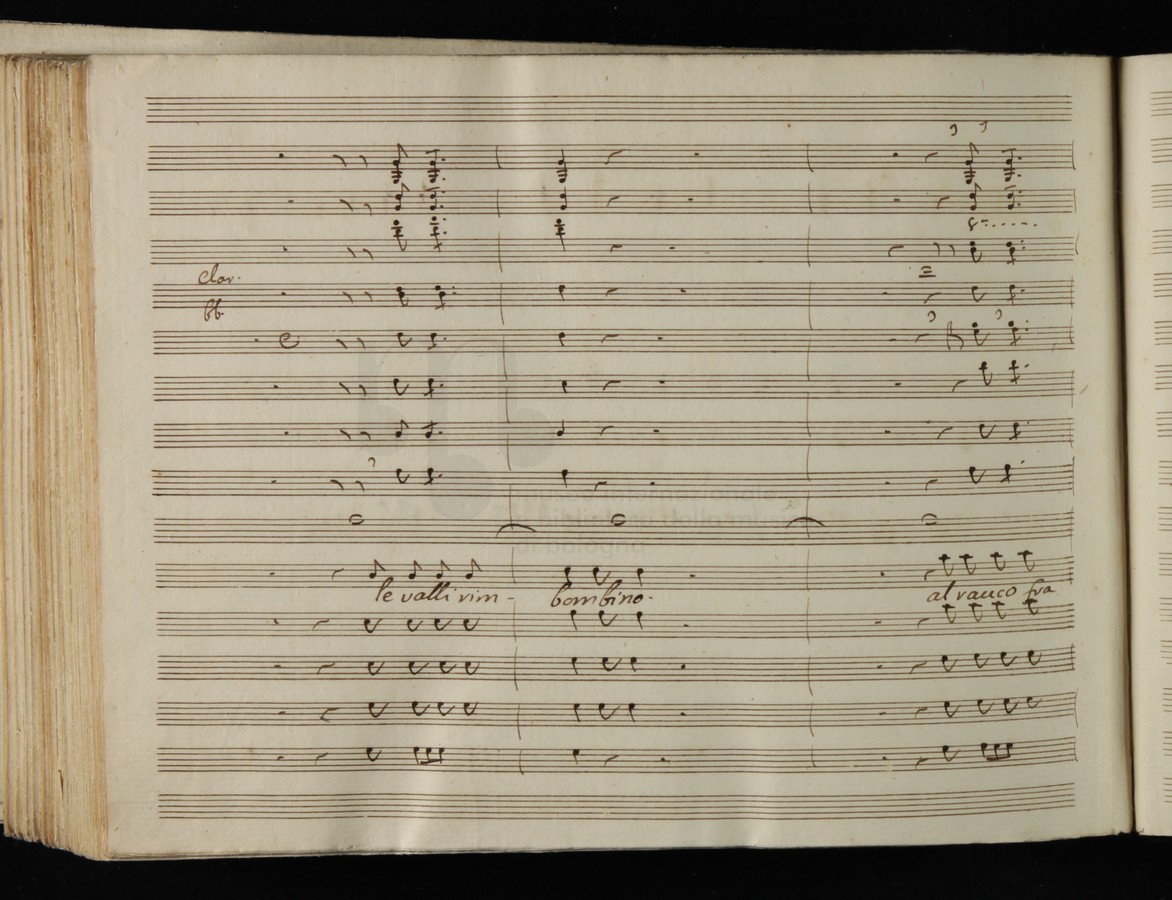 clar.
le valli rim - bombino. al rauco fra
museo internazionale
e biblioteca della musica
di bologna